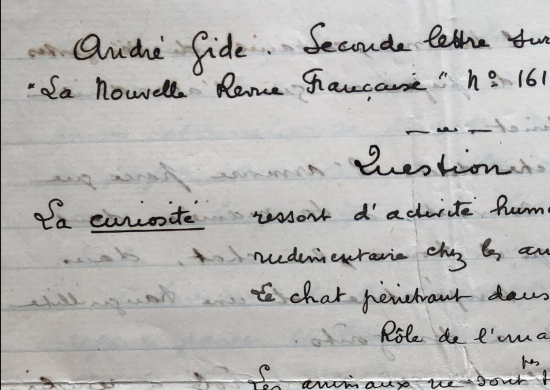 André Gide. Seconde lettre sur
"La Nouvelle Revue Française" Nº 161
Question
La curiosité ressort d'activité huma
rudimentaire chez les an
Le chat pénétrant dans
Rôle de l'ima
Les animaux ne sont